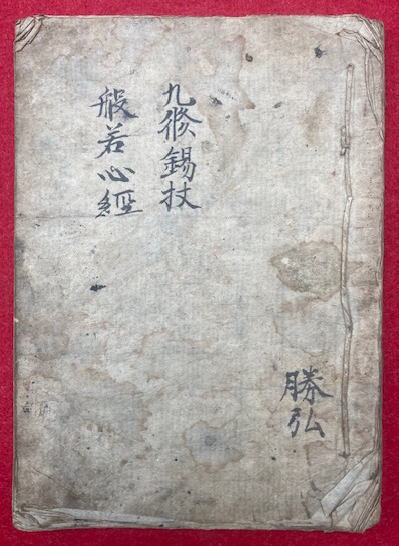 九條錫杖
般若心經
勝弘